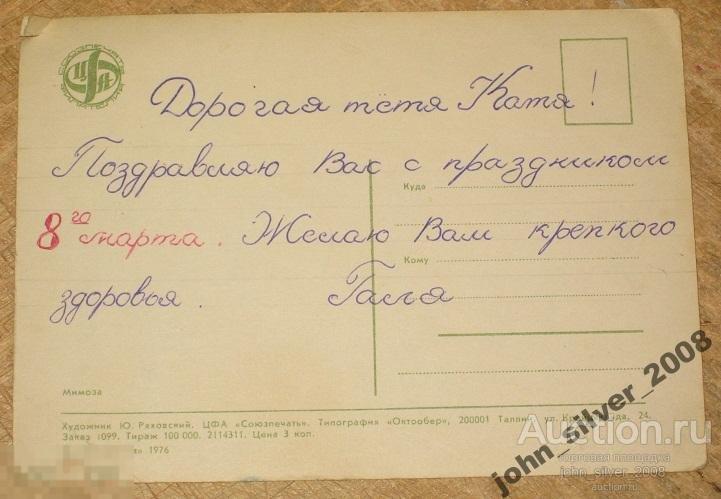 СОЮЗПЕЧАТЬ
ЦФА
ФИЛАТЕЛИЯ
Дорогая тётя Катя!
Поздравляю Вас с праздником
Куда
8го марта. Желаю Вам крепкого
Кому
здоровья. Галя
Мимоза
Художник Ю. Ряховский. ЦФА «Союзпечать». Типография «Октообер», 200001 Таллин, ул. 24.
Заказ 1099. Тираж 100 000. 2114311. Цена 3 коп.
1976
john_silver_2008
Auction.ru
торговая площадка
john_silver_2008
auction.ru